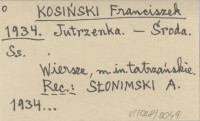 KOSIŃSKI Franciszek
1934. Jutrzenka. — Środa.
Ss. .
Wiersze, m.in. tatrzańskie.
Rec.: SŁONIMSKI A.
1934...